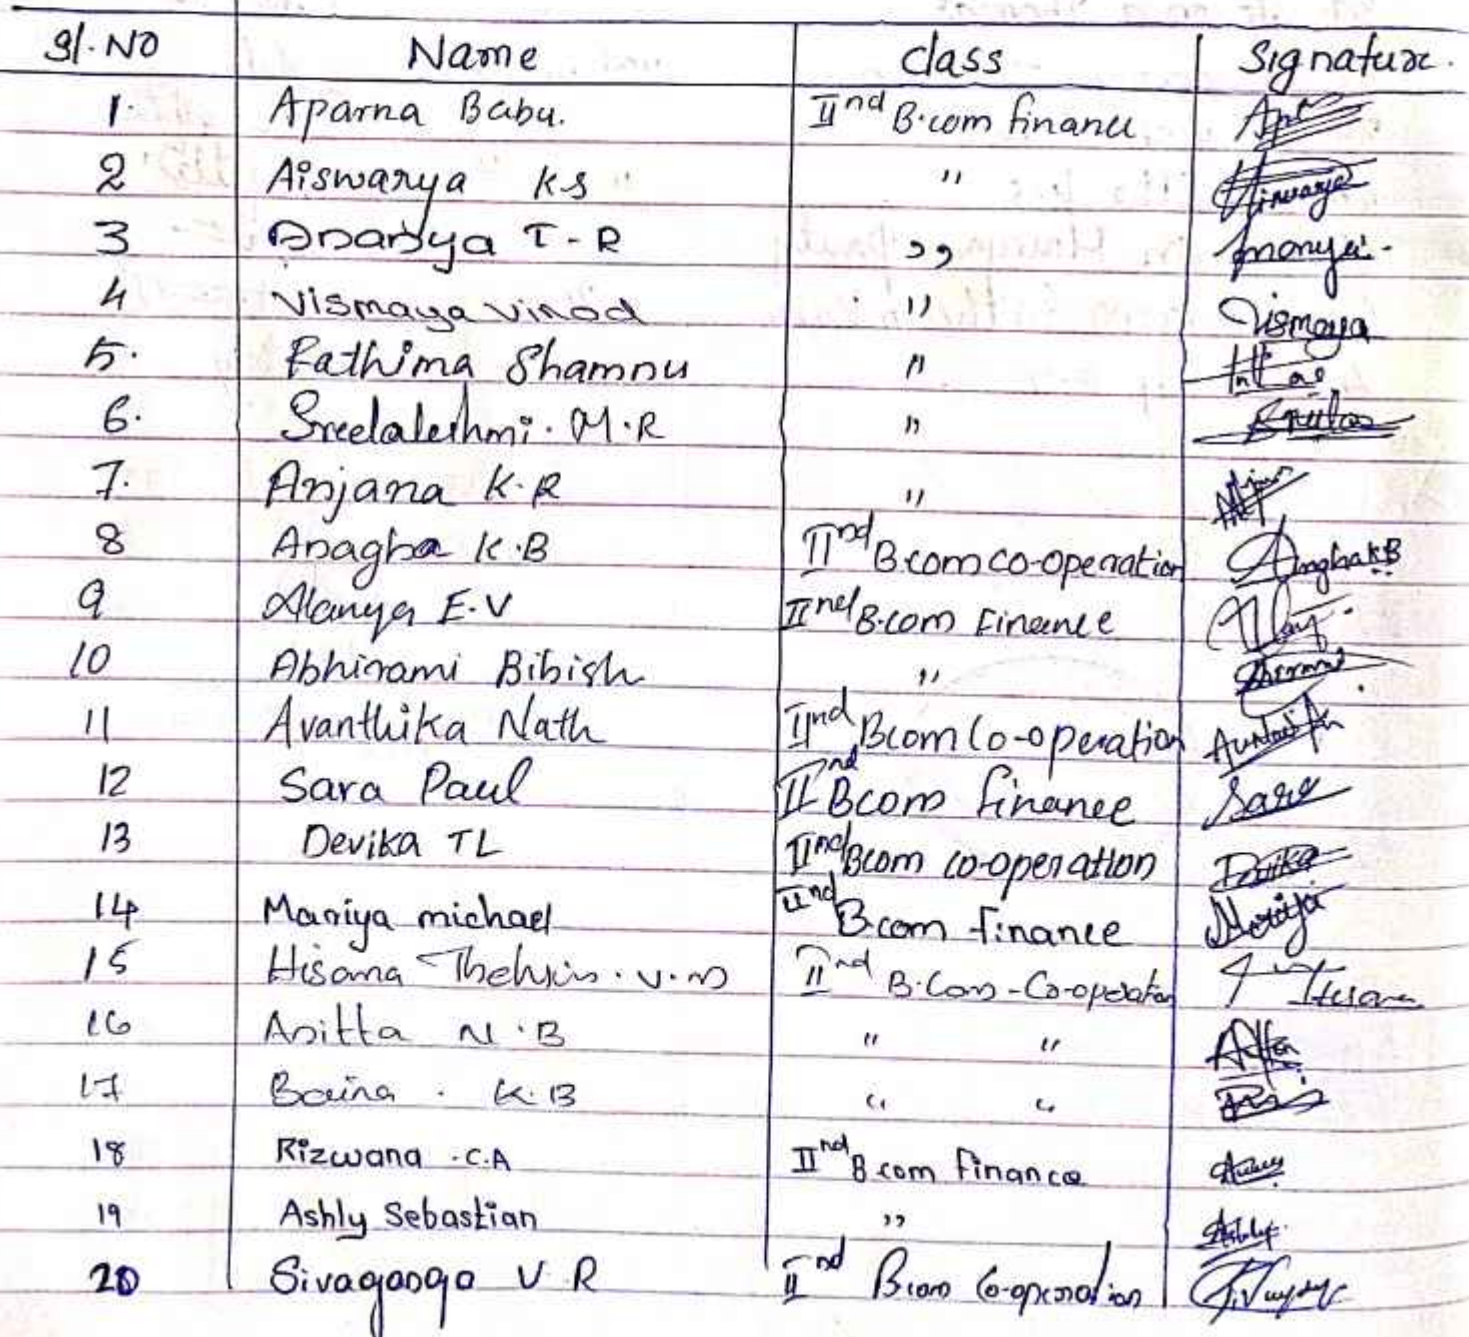 Sl. No Name Class Signature.
1. Aparna Babu. IInd B.com finance
2 Aiswarya K S " Aiswarya
3 Ananya T-R ,, Ananya.
4 Vismaya Vinod " Vismaya
5. Fathima Shamnu "
6. Sreelakshmi. M.R "
7. Anjana K.R "
8 Anagha K.B IInd B.com co-operation Anagha K B
9 Alanya E.V IInd B.com Finance
10 Abhirami Bibish "
11 Avanthika Nath IInd Bcom Co-operation
12 Sara Paul IInd Bcom finance Sara
13 Devika TL IInd Bcom co-operation Devika
14 Mariya michael IInd B.com finance Mariya
15 Hisana Thehsin. V.M IInd B.Com-Co-operation Hisana
16 Anitta N.B " "
17 K.B " "
18 Rizwana .C.A IInd B.com Finance
19 Ashly Sebastian ,, Ashly
20 Sivaganga V R IInd Bcom Co-operation